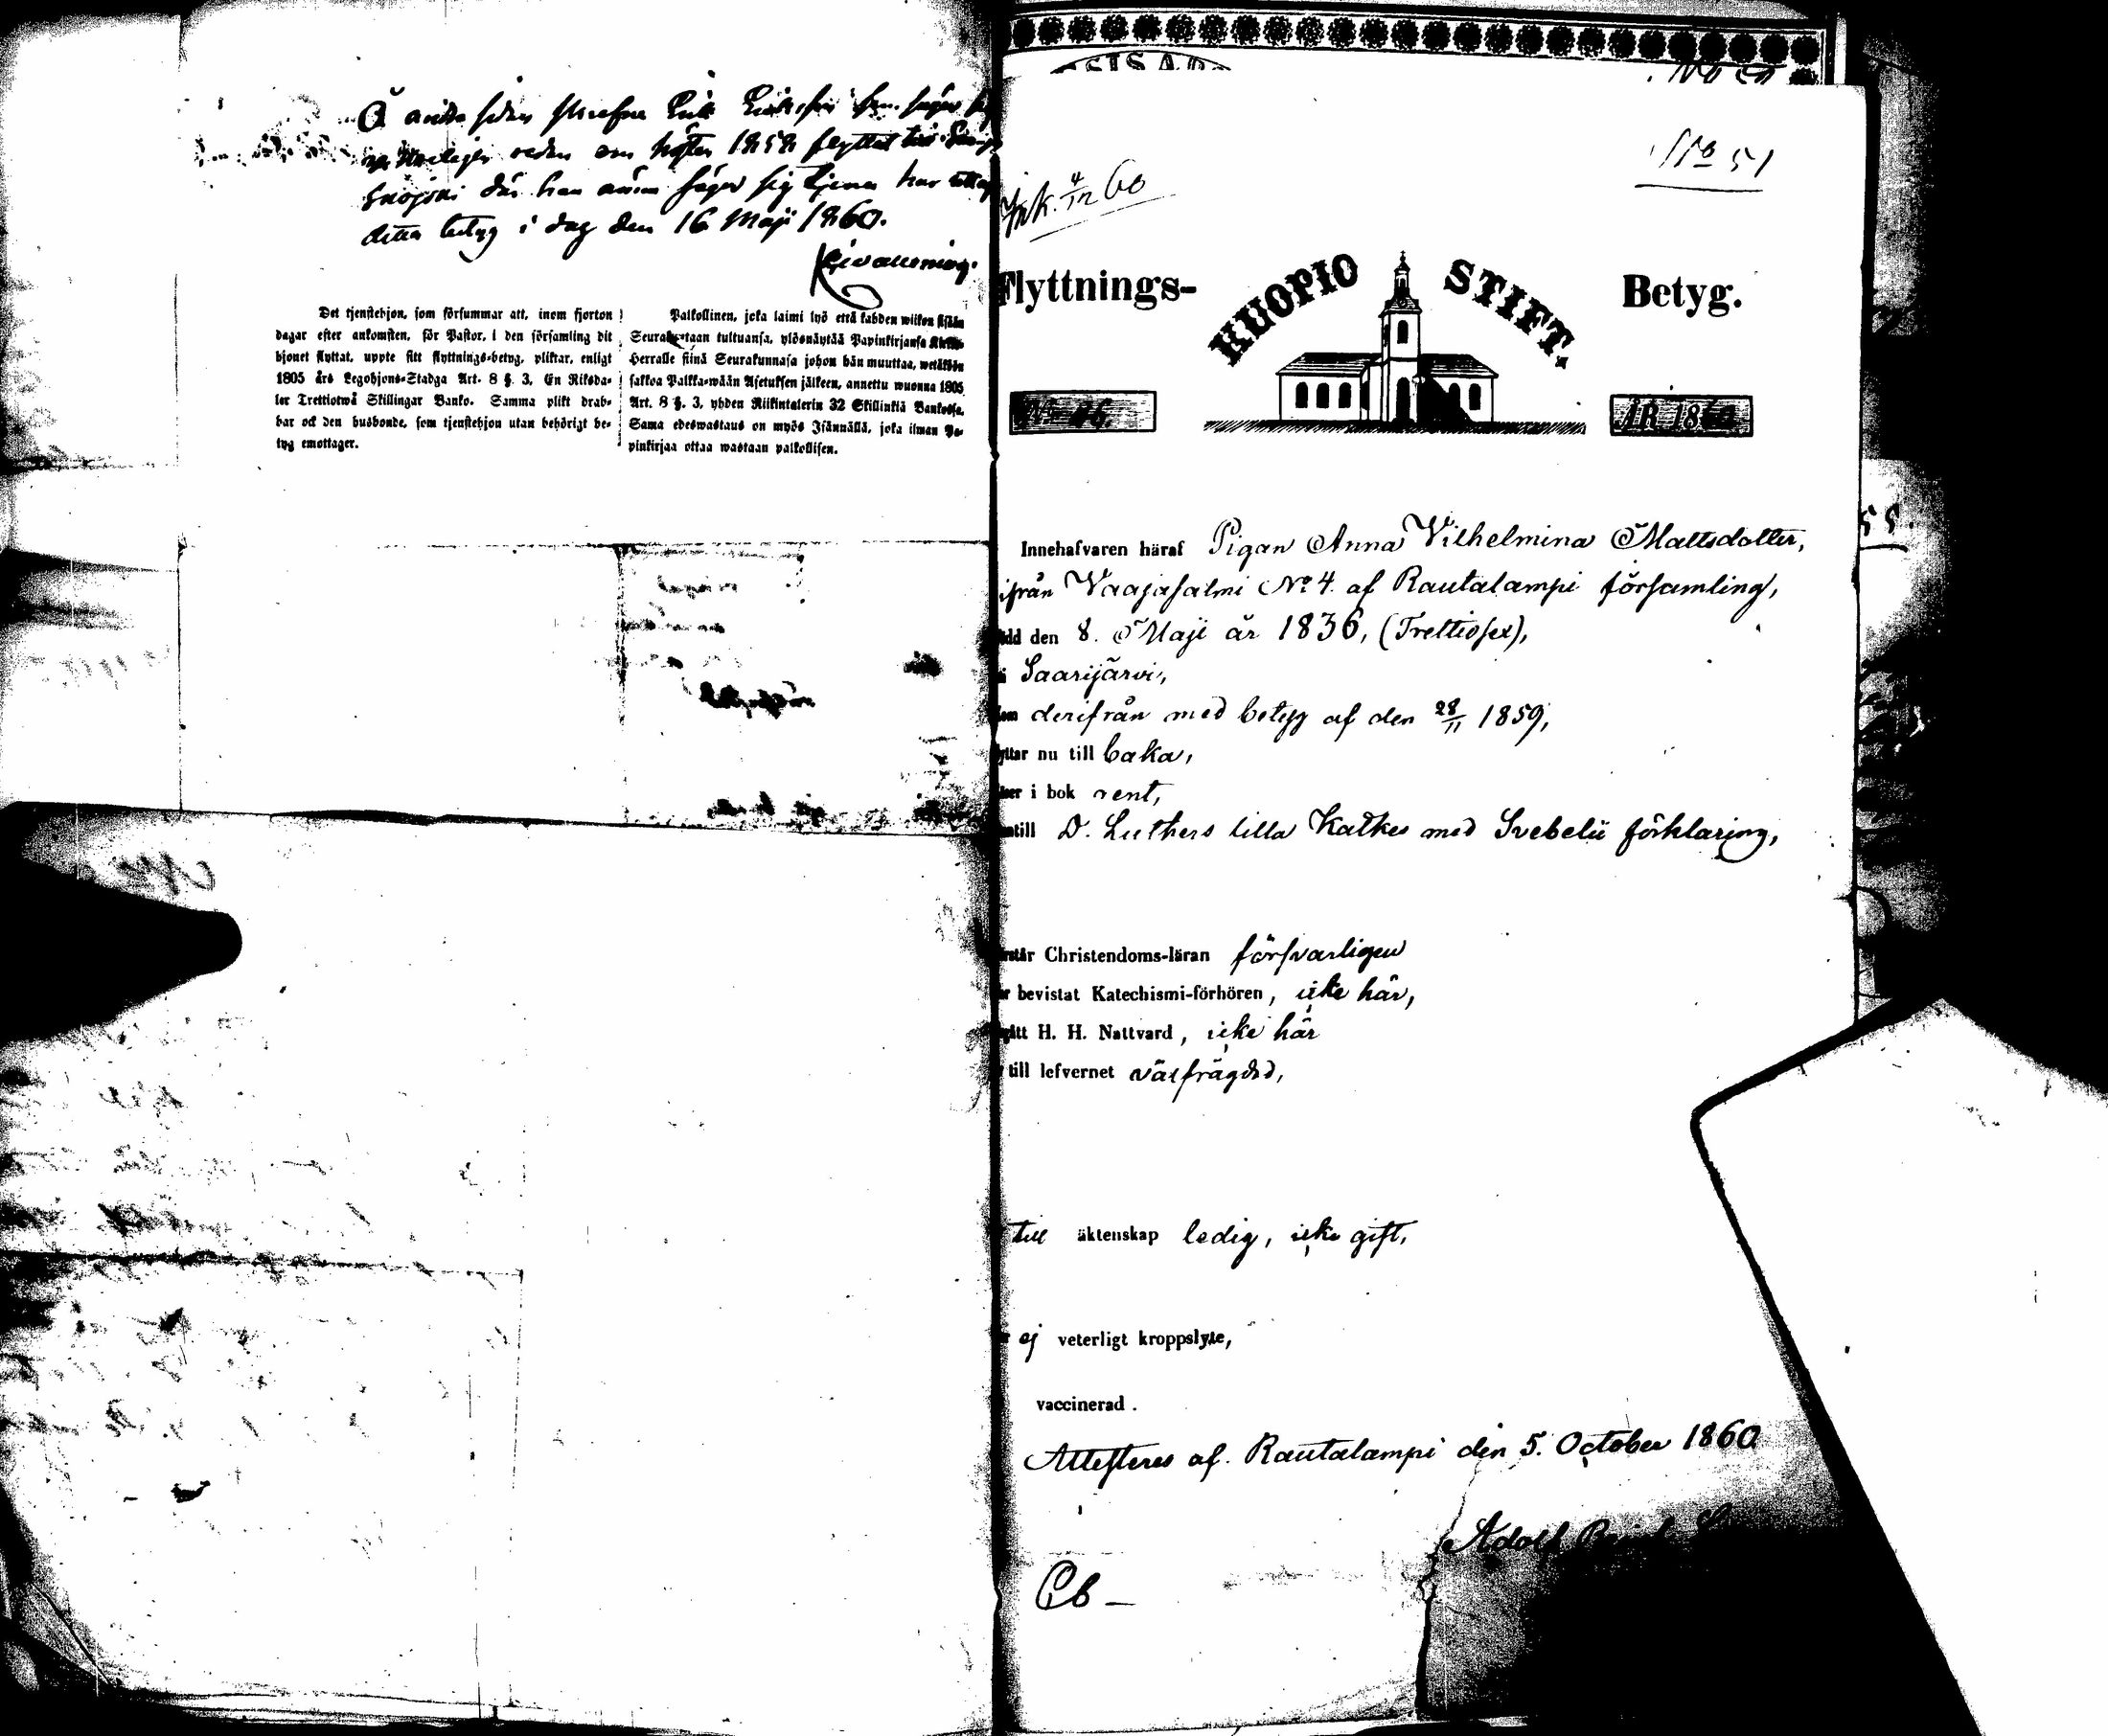 Å andra sidan skrefne Erik Eriksson som säger sig
redan om hösten 1858 flyttat till
där han ännu säger sig tjena har
detta betyg i dag den 16 Maji 1860.
Det tjenstehjon, som försummar att, inom fjorton
dagar efter ankomsten, för Pastor, i den församling dit
hjonet flyttat, uppte sitt flyttnings-betyg, pliktar, enligt
1805 års Legohjons-Stadga Art. 8 §. 3, En Riksda-
ler Trettiotwå Skillingar Banko. Samma plikt drab-
bar ock den husbonde, som tjenstehjon utan behörigt be-
tyg emottager.
Palkollinen, joka laimi lyö että kahden wiikon sisään
Seurakuntaan tultuansa, ylösnäytää Papinkirjansa Kirkko-
Herralle siinä Seurakunnasa johon hän muuttaa, wetäköön
sakkoa Palkka-wään Asetuksen jälkeen, annettu wuonna 1805
Art. 8 §. 3, yhden Riikintalerin 32 Skillinkiä Bankossa.
Sama edeswastaus on myös Isännällä, joka ilman Pa-
pinkirjaa ottaa wastaan palkollisen.
No 51
Ink. 4/12 60
Flyttnings- KUOPIO STIFT. Betyg.
No 46. ÅR 1860
Innehafvaren häraf Pigan Anna Vilhelmina Mattsdotter,
ifrån Vaajasalmi No 4. af Rautalampi församling,
född den 8. Maji år 1836, (Trettiosex),
i Saarijärvi,
kom derifrån med betyg af den 28/11 1859,
flyttar nu till baka,
läser i bok rent,
utantill D. Luthers lilla Katkes med Svebelii förklaring,
förstår Christendoms-läran försvarligen
har bevistat Katechismi-förhören, icke här,
begått H. H. Nattvard, icke här
till lefvernet välfrägdad,
till äktenskap ledig, icke gift,
har ej veterligt kroppslyte,
vaccinerad.
Attesteras af. Rautalampi den 5. October 1860
Adolf
Cb –